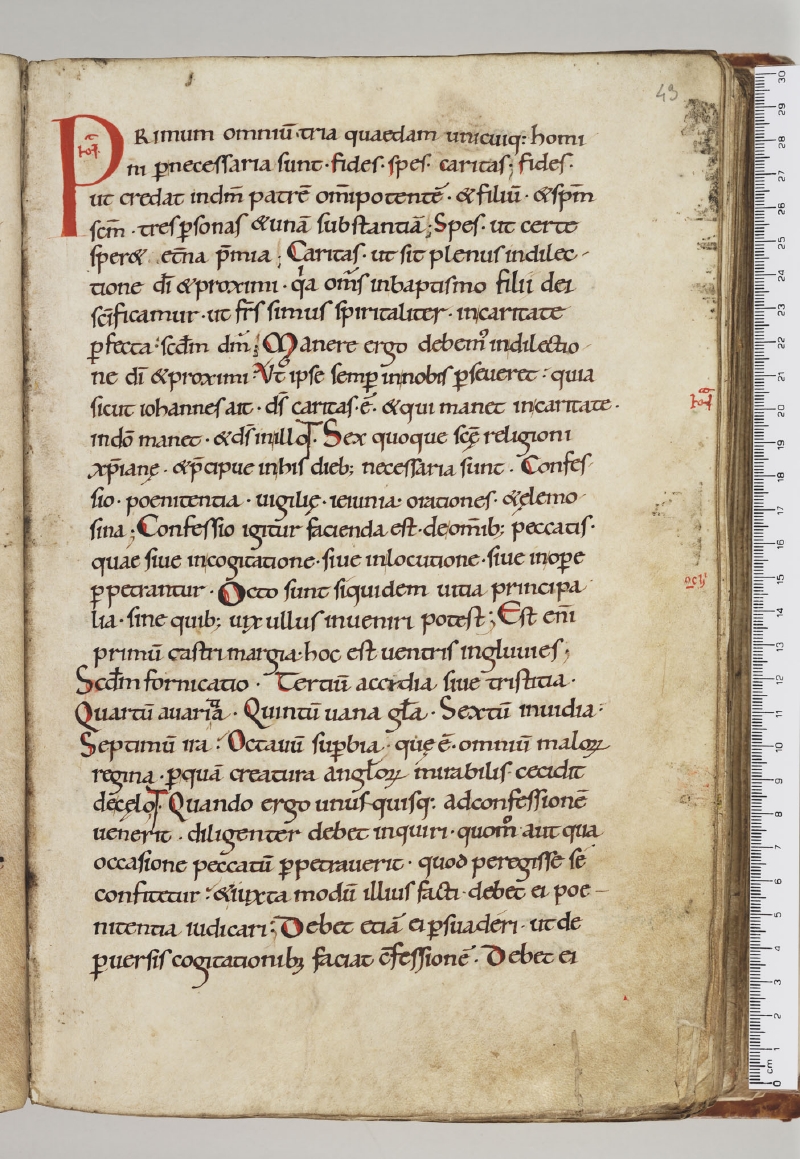 49
PRimum omniū tria quaedam unicuiq; homi
ni ꝑnecessaria sunt · fides · spes · caritas; fides ·
ut credat indm̄ patrē om̄ipotentē · & filiū · & sp̄m
sc̄m · tres ꝑsonas & unā substantiā; Spes · ut certe
sper& et̄na p̄mia; Caritas · ut sit plenus indilec-
tione dī & proximi · qͥa om̄s inbaptismo filii dei
sc̄ificamur · ut fr̄s simus spiritaliter · incaritate
ꝑfecta · scd̄m dm̄; Manere ergo debemꝰ indilectio-
ne dī & proximi · Ut ipse semꝑ innobis ꝑseueret · quia
sicut iohannes ait · ds̄ caritas · ē · & qui manet incaritate ·
indō manet · & ds̄ in illo · Sex quoque scę̄ religioni
xp̄ianę · & p̄cipue inhis dieb; necessaria sunt · Confes-
sio · poenitentia · uigilię · ieiunia · orationes · & elemo-
sina; Confessio igitur facienda est · deom̄ib; peccatis ·
quae siue incogitatione · siue inlocutione · siue inoꝑe
ꝑpetrantur · Octo sunt siquidem uitia principa
lia · sine quib; uix ullus inueniri potest; Est eni̅
primū castrimargia · hoc est uentris ingluuies;
Scd̄m fornicatio · Tertiū accidia siue tristitia ·
Quartū auaritia · Quintū uana gl̄a · Sextū inuidia ·
Septimū ira · Octauū suꝑbia · quę ē · omniū maloꝝ
regina · ꝑquā creatura angl̄oꝝ mirabilis cecidit
de cęlo · Quando ergo unus quisq; adconfessionē
uenerit · diligenter debet inquiri · quom̊ aut qua
occasione peccatū ꝑpetrauerit · quod peregisse se
confitetur · & iuxta modū illius facti debet ei poe-
nitentia iudicari; Debet etiā ei ꝑsuaderi · ut de
ꝑuersis cogitationibꝫ faciat c̄fessionē · Debet ei